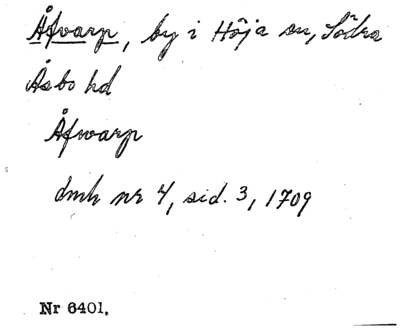 Åfvarp, by i Höja sn, Södra
Åsbo hd
Åfwarp
dmh nr 4, sid. 3, 1709
Nr 6401.